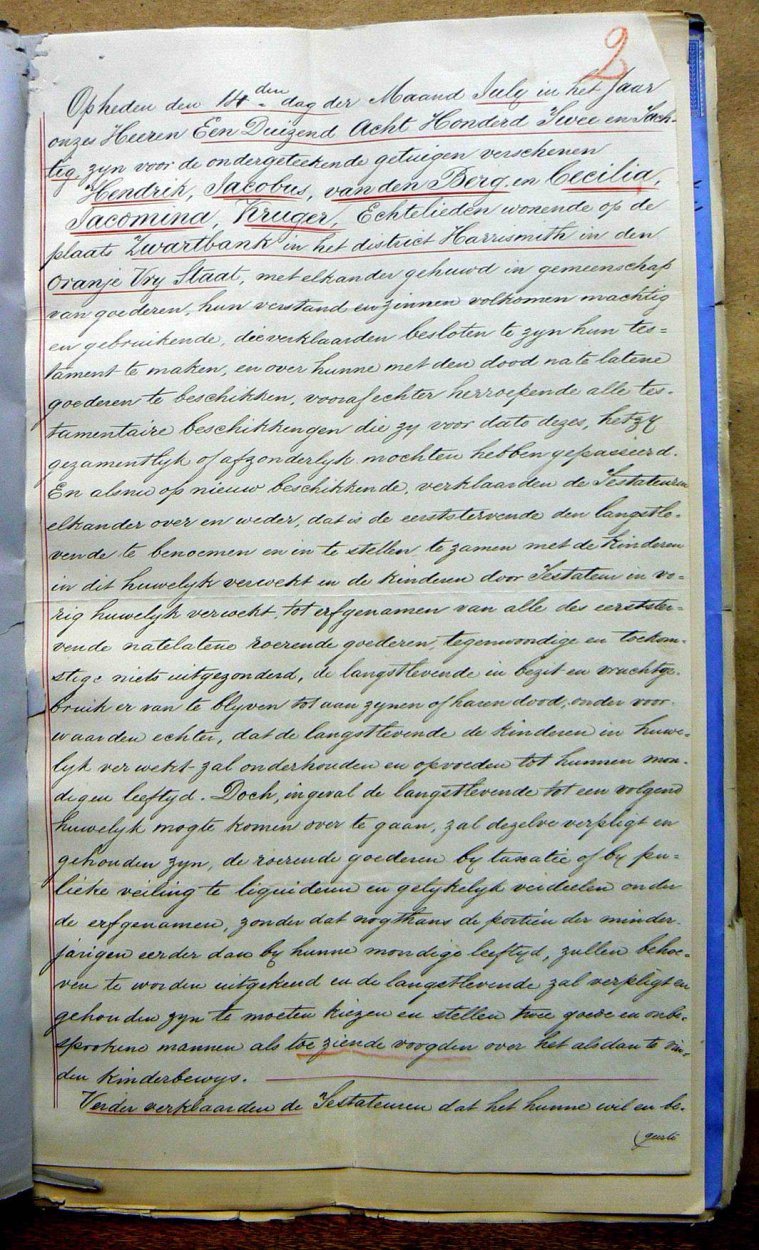 2
Op heden den 14den dag der Maand July in het Jaar
onzes Heeren Een Duizend Acht Honderd Twee en Tach-
tig, zyn voor de ondergeteekende getuigen verschenen
Hendrik, Jacobus, van den Berg, en Cecilia,
Jacomina, Kruger, Echtelieden wonende op de
plaats Zwartbank in het district Harrismith in den
Oranje Vry Staat, met elkander gehuwd in gemeenschap
van goederen, hun verstand en zinnen volkomen machtig
en gebruikende, die verklaarden besloten te zyn hun tes=
tament te maken, en over hunne met den dood na te latene
goederen te beschikken, vooraf echter herroepende alle tes-
tamentaire beschikkingen die zy voor dato dezes, hetzy
gezamentlyk of afzonderlyk mochten hebben gepasseerd.
En alsnu op nieuw beschikkende, verklaarden de Testateuren
elkander over en weder, dat is de eerststervende den langstle-
vende te benoemen en in te stellen te zamen met de kinderen
in dit huwelyk verwekt en de kinderen door Testateur in vo-
rig huwelyk verwekt, tot erfgenamen van alle des eerstster-
vende natelatene roerende goederen, tegenwoordige en toekom-
stige niets uitgezonderd, de langstlevende in bezit en vruchtge-
bruik er van te blyven tot aan zynen of haren dood, onder voor-
waarden echter, dat de langstlevende de kinderen in huwe-
lyk verwekt zal onderhouden en opvoeden tot hunnen mon-
digen leeftyd. Doch, ingeval de langstlevende tot een volgend
huwelyk mogte komen over te gaan, zal dezelve verpligt en
gehouden zyn, de roerende goederen by taxatie of by pu-
lieke veiling te liquideren en gelykelyk verdeelen onder
de erfgenamen, zonder dat nogthans de portien der minder-
jarigen eerder dan by hunne mondige leeftyd, zullen behoe-
ven te worden uitgekeerd en de langstlevende zal verpligt en
gehouden zyn te moeten kiezen en stellen twee goede en onbe-
sprokene mannen als toeziende voogden over het alsdan te vin-
den kinderbewys.
Verder verklaarden de Testateuren dat het hunne wil en be-
geerte